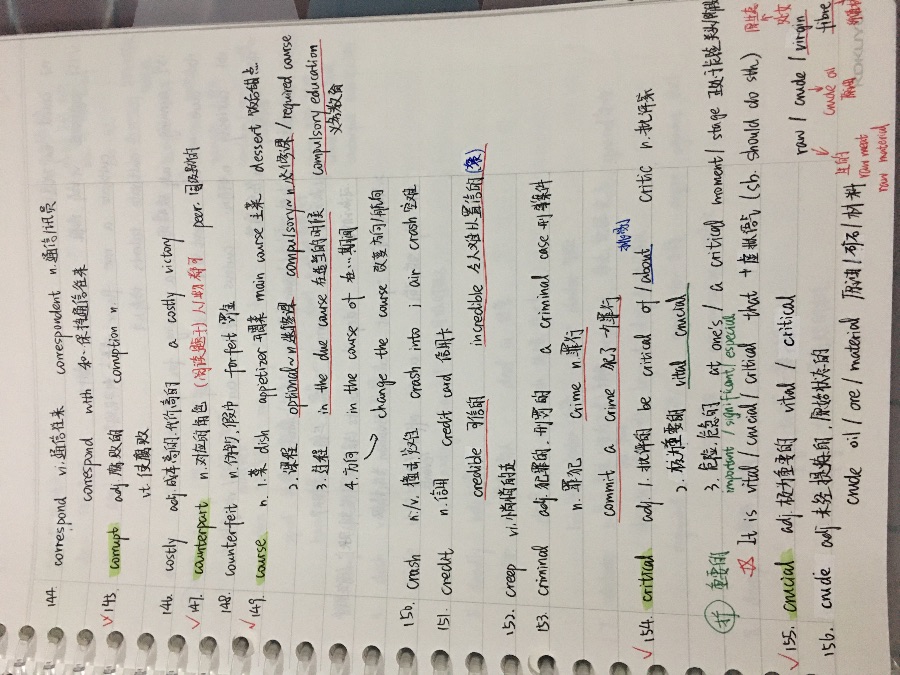 144. correspond vi. 通信往来 correspondent n. 通信/讯员
correspond with 和…保持通信往来
√145. corrupt adj. 腐败的 corruption n.
vt. 使腐败
146. costly adj. 成本高的,代价高的 a costly victory
√147. counterpart n. 对应的角色 (阅读题中) 人/物都可 peer: 同级别的
148. counterfeit n. 仿制,假币 forfeit 罚金
√149. course n. 1. 菜 dish appetizer 开胃菜 main course 主菜 dessert 饭后甜点
2. 课程 optional~ n. 选修课 compulsory~ n. 必修课 / required course
compulsory education
义务教育
3. 过程 in the due course 在适当的时候
in the course of 在…期间
4. 方向 → change the course 改变方向/航向
150. crash n./v. 撞击,坠毁 crash into i air crash 空难
151. credit n. 信用 credit card 信用卡
credible 可信的 incredible 令人难以置信的
152. creep vi. 悄悄的走
153. criminal adj. 犯罪的,刑罚的 a criminal case 刑事案件
n. 罪犯 crime n. 罪行
commit a crime 犯了…罪行
√154. critical adj. 1. 批评的 be critical of / about 挑剔 critic n. 批评家
2. 极为重要的 vital crucial
3. 危险,危急的 at one's / a critical moment / stage
重要的 important / significant / especial
It is vital / crucial / critical that + 虚拟语气 (sb. should do sth)
√155. crucial adj. 极为重要的 vital / critical
raw / crude / virgin 处女 fibre
生的 raw meat raw material
crude oil 原油
156. crude adj. 未经提炼的,原始状态的
crude oil / ore / material 原油/矿石/材料
KOKUYO